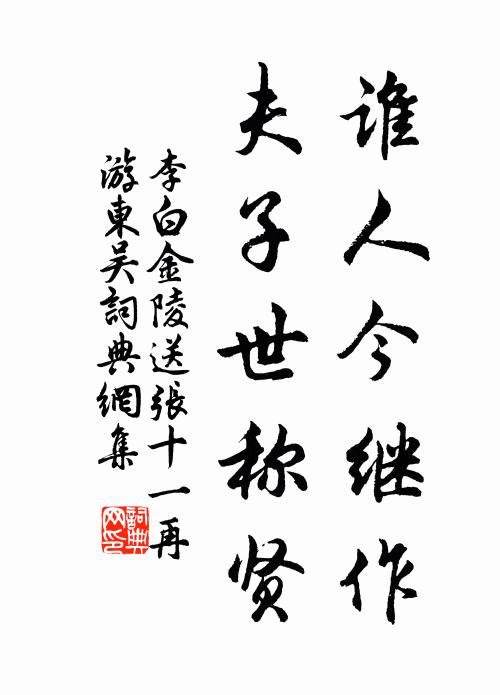 谁人今继作
夫子世称贤
李白金陵送張十一再
游東吴詞典網集
詞典
网印